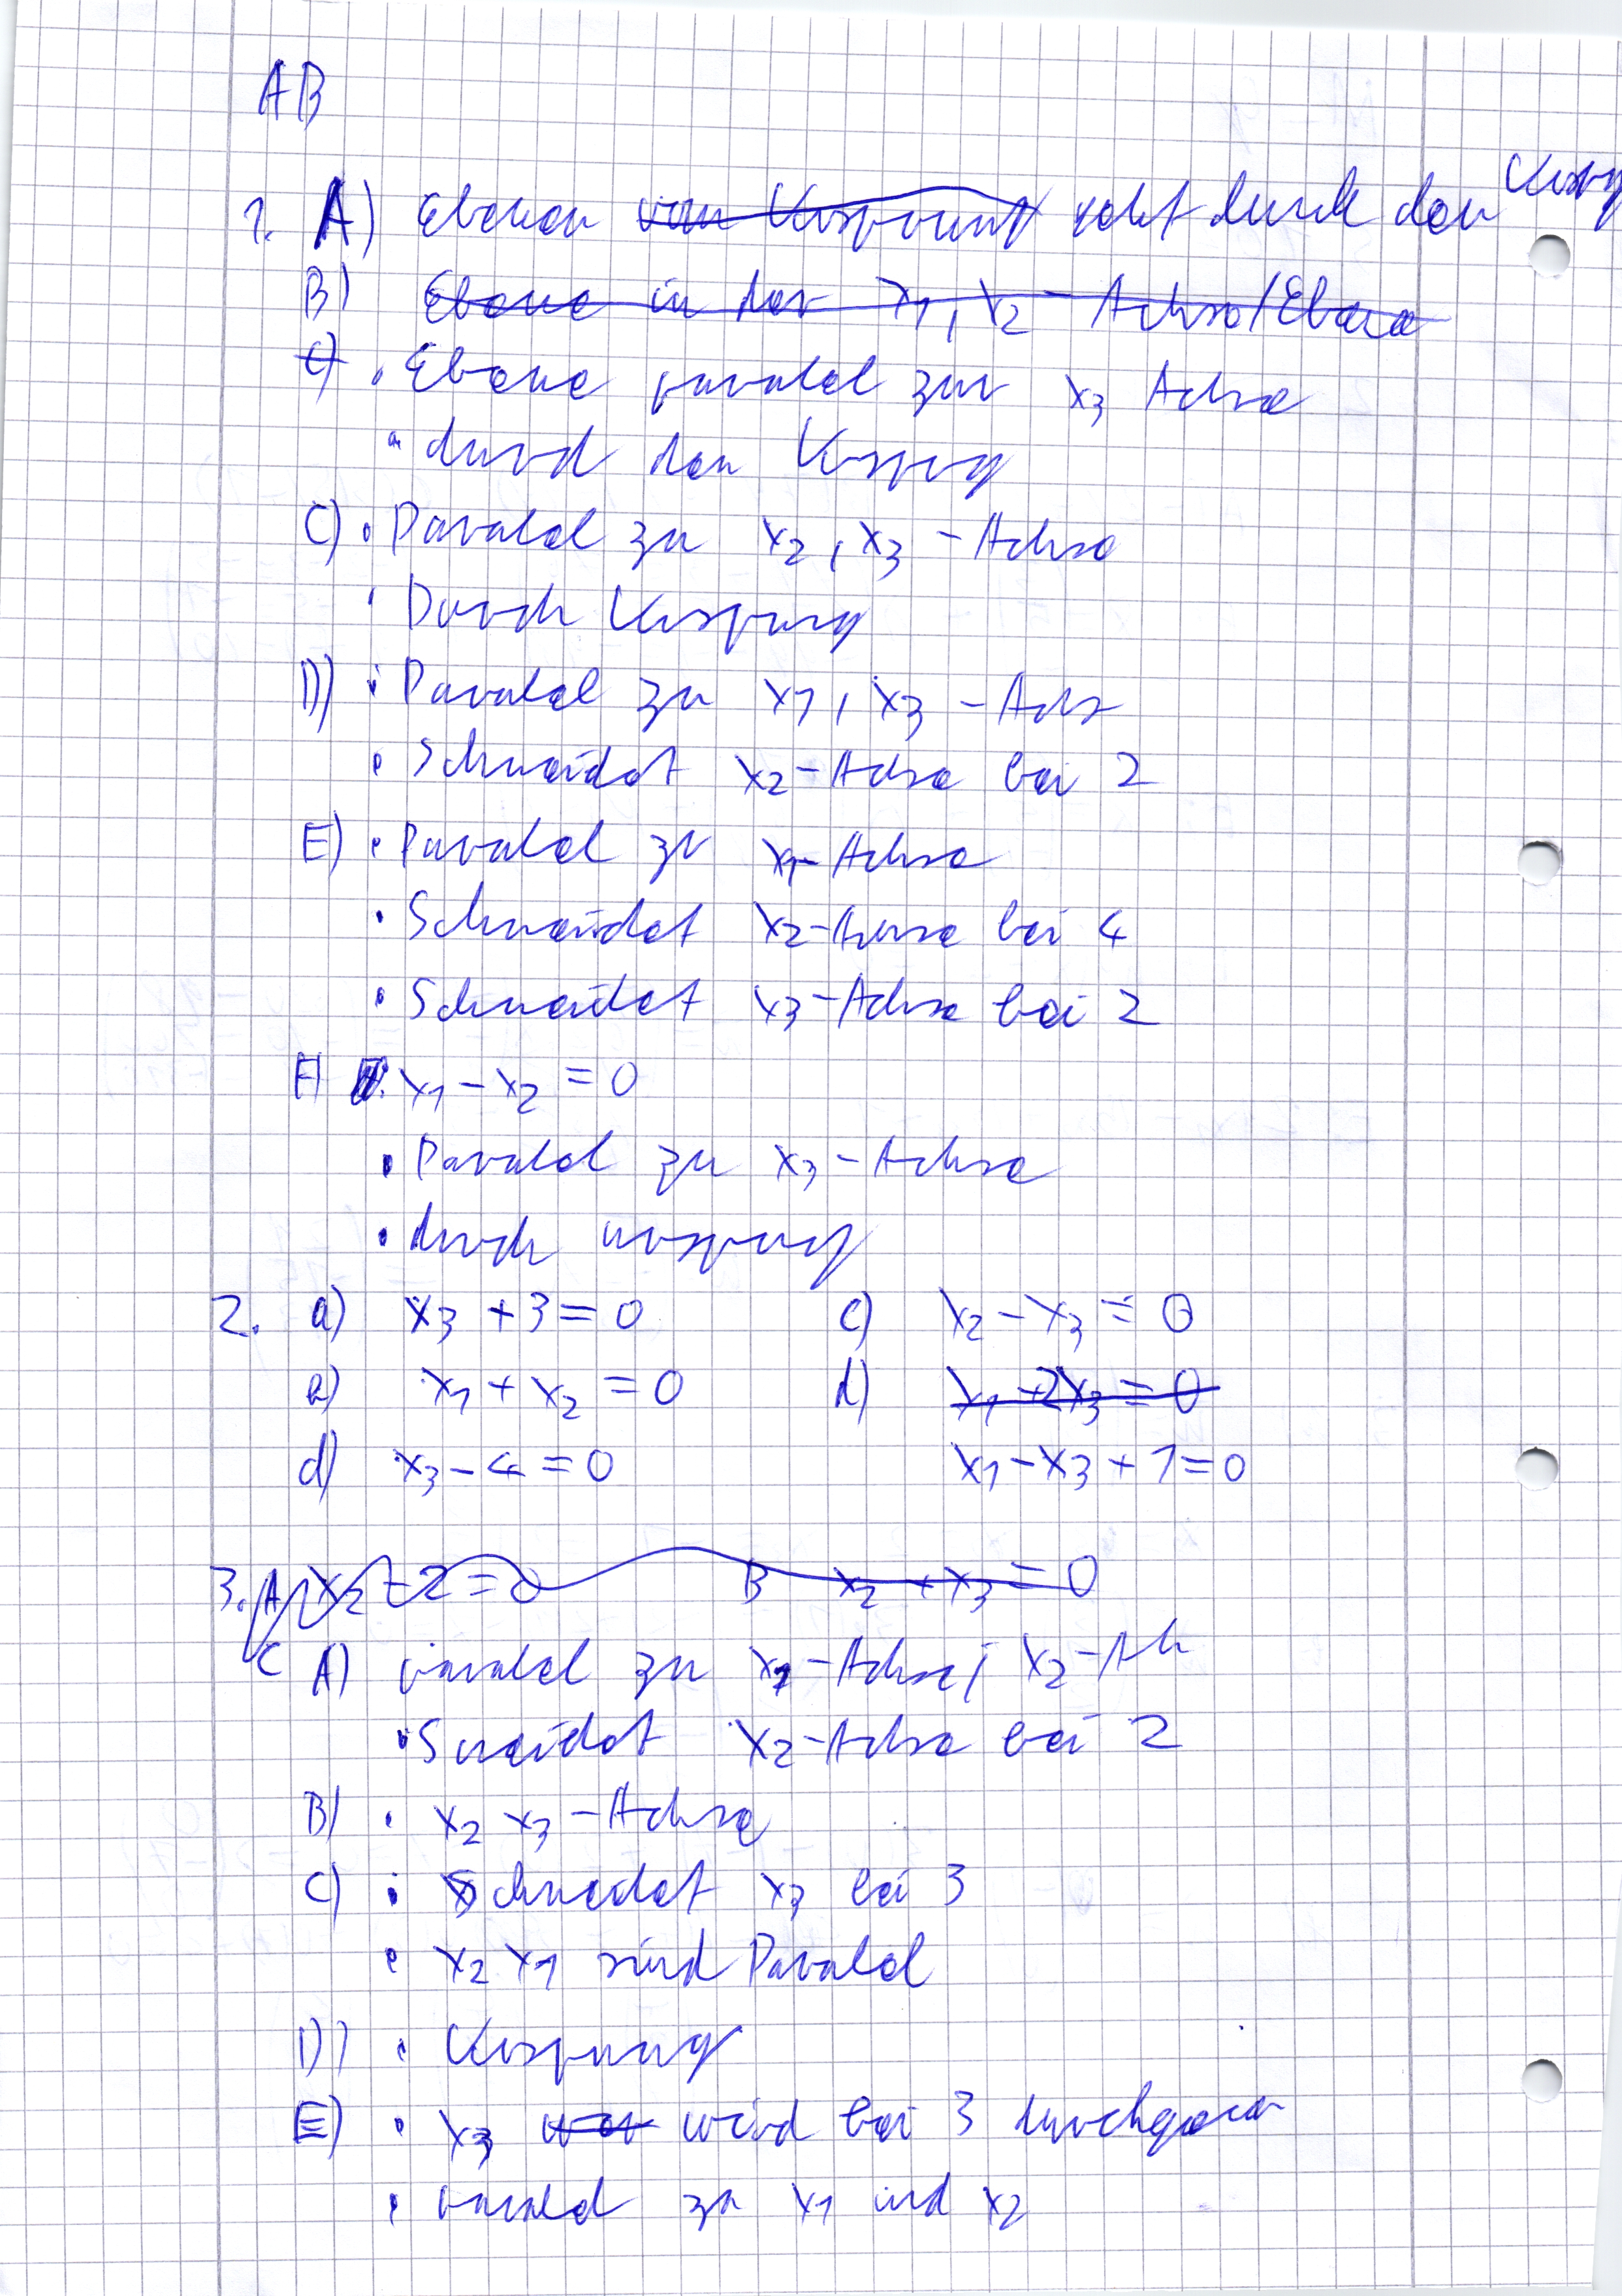 AB
1. A) Ebenen vom Ursprung geht durch den Urspr
B) Ebene in der x1, x2 - Achse/Ebene
C) • Ebene paralel zur x3 Achse
• durch den Ursprung
C) • Paralel zu x2, x3 - Achse
• Durch Ursprung
D) • Paralel zu x1, x3 - Achs
• Schneidet x2-Achse bei 2
E) • Paralel zu x1-Achse
• Schneidet x2-Achse bei 4
• Schneidet x3-Achse bei 2
F) x1 - x2 = 0
• Paralel zu x3-Achse
• durch ursprung
2. a) x3 + 3 = 0 c) x2 - x3 = 0
e) x1 + x2 = 0 d) x1 - 2x3 = 0
d) x3 - 4 = 0 x1 - x3 + 1 = 0
3. A x2 - 2 = 0 B x2 + x3 = 0
C A) paralel zu x1-Achse, x2-Ah
• Sneidet x2-Achse bei 2
B) • x2 x3 - Achse
C) • Schneidet x3 bei 3
• x2 x1 sind Paralel
D) • Ursprung
E) • x3 wird bei 3
• paralel zu x1 und x2